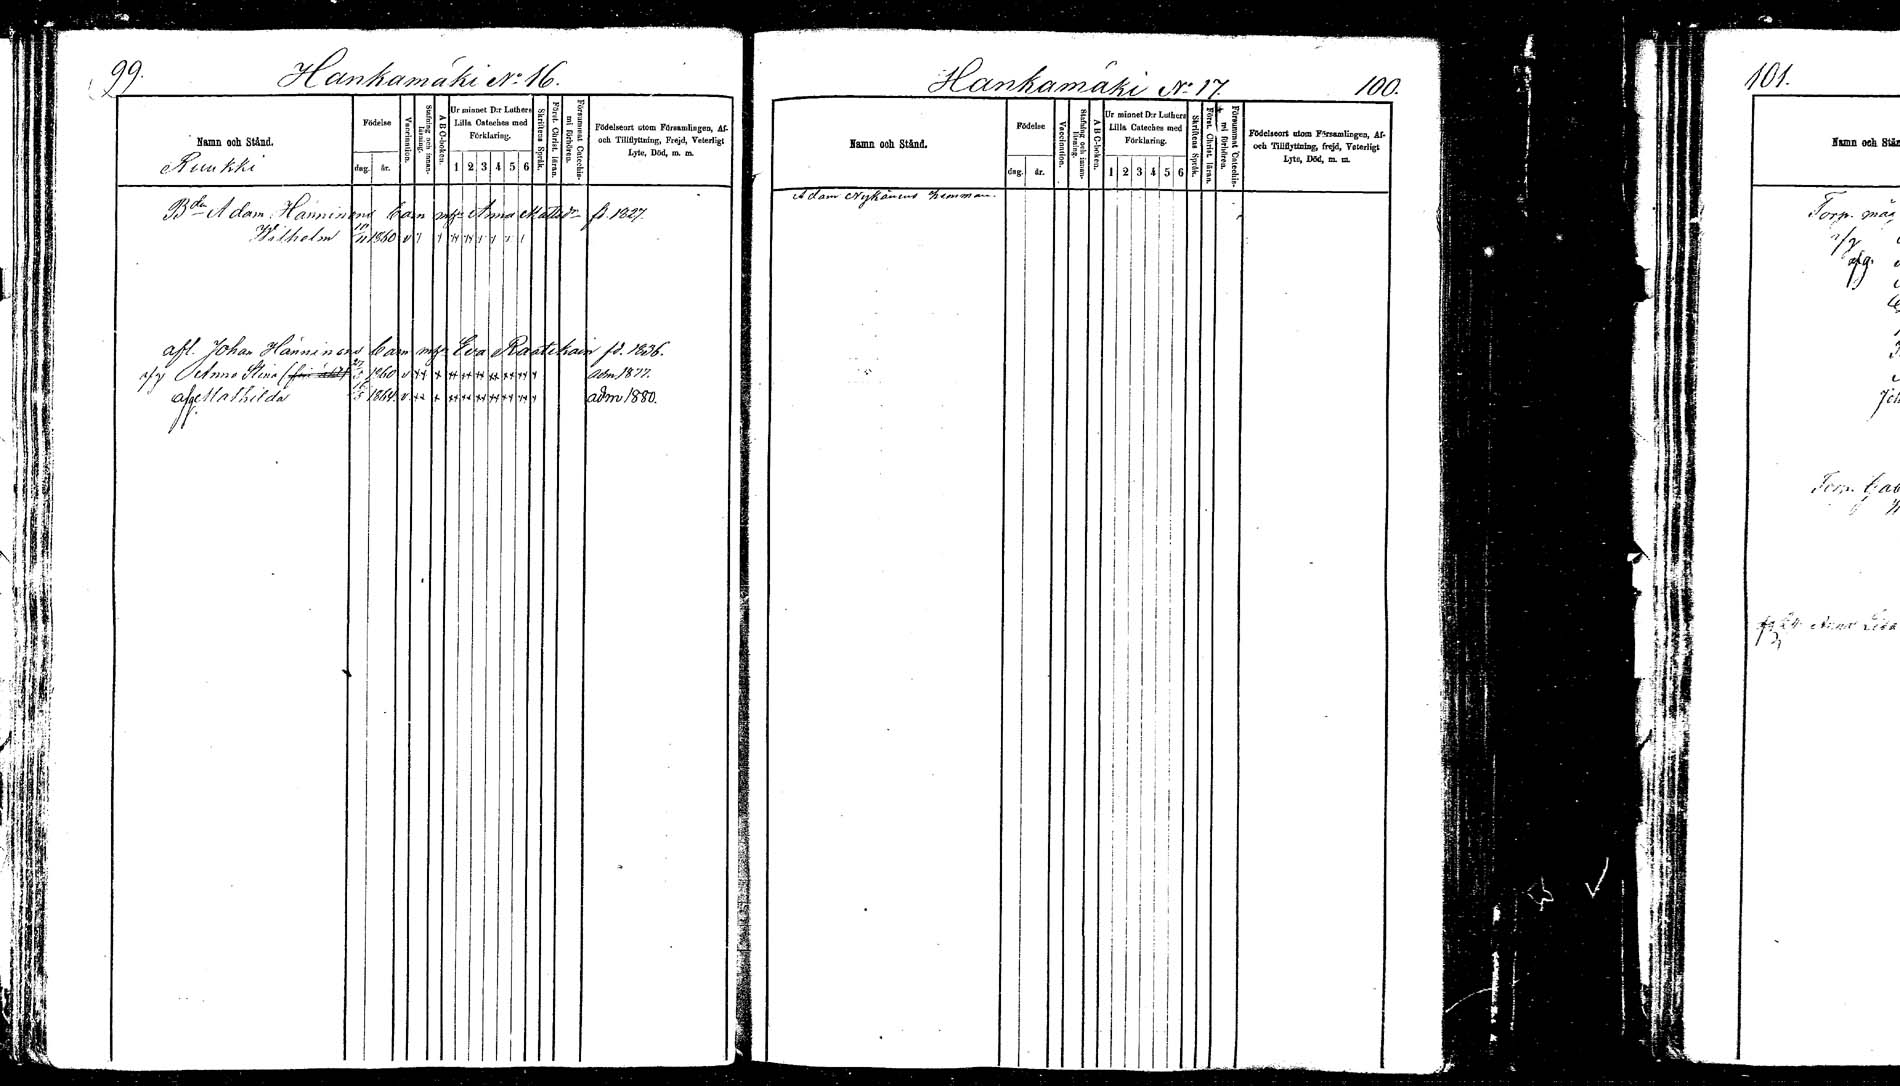 99.
Hankamäki No 16.
Namn och Stånd.
Födelse
dag.
år.
Vaccination.
Stafning och innanläsning.
A B C-boken.
Ur minnet D:r Luthers Lilla Cateches med Förklaring.
1 2 3 4 5 6
Skriftens Språk.
Föret. Christ. läran.
Försummat Catechismi förhören.
Födelseort utom Församlingen, Af- och Tillflyttning, Frejd, Veterligt Lyte, Död, m. m.
Ruukki
Bdn Adam Hänninens barn mfr Anna Mattsdr fd. 1827.
Wilhelm 1860 v
afl. Johan Hänninens barn mfr Eva Raatikain fd. 1836.
Anna Stina 1860 v adm 1877.
Mathilda 1864 v adm 1880.
Hankamäki No 17.
100.
Namn och Stånd.
Födelse
dag.
år.
Vaccination.
Stafning och innanläsning.
A B C-boken.
Ur minnet D:r Luthers Lilla Cateches med Förklaring.
1 2 3 4 5 6
Skriftens Språk.
Föret. Christ. läran.
Försummat Catechismi förhören.
Födelseort utom Församlingen, Af- och Tillflyttning, frejd, Veterligt Lyte, Död, m. m.
Adam Nykänens hemman.
101.
Namn och Stån
Torp. måg
Anna Lisa